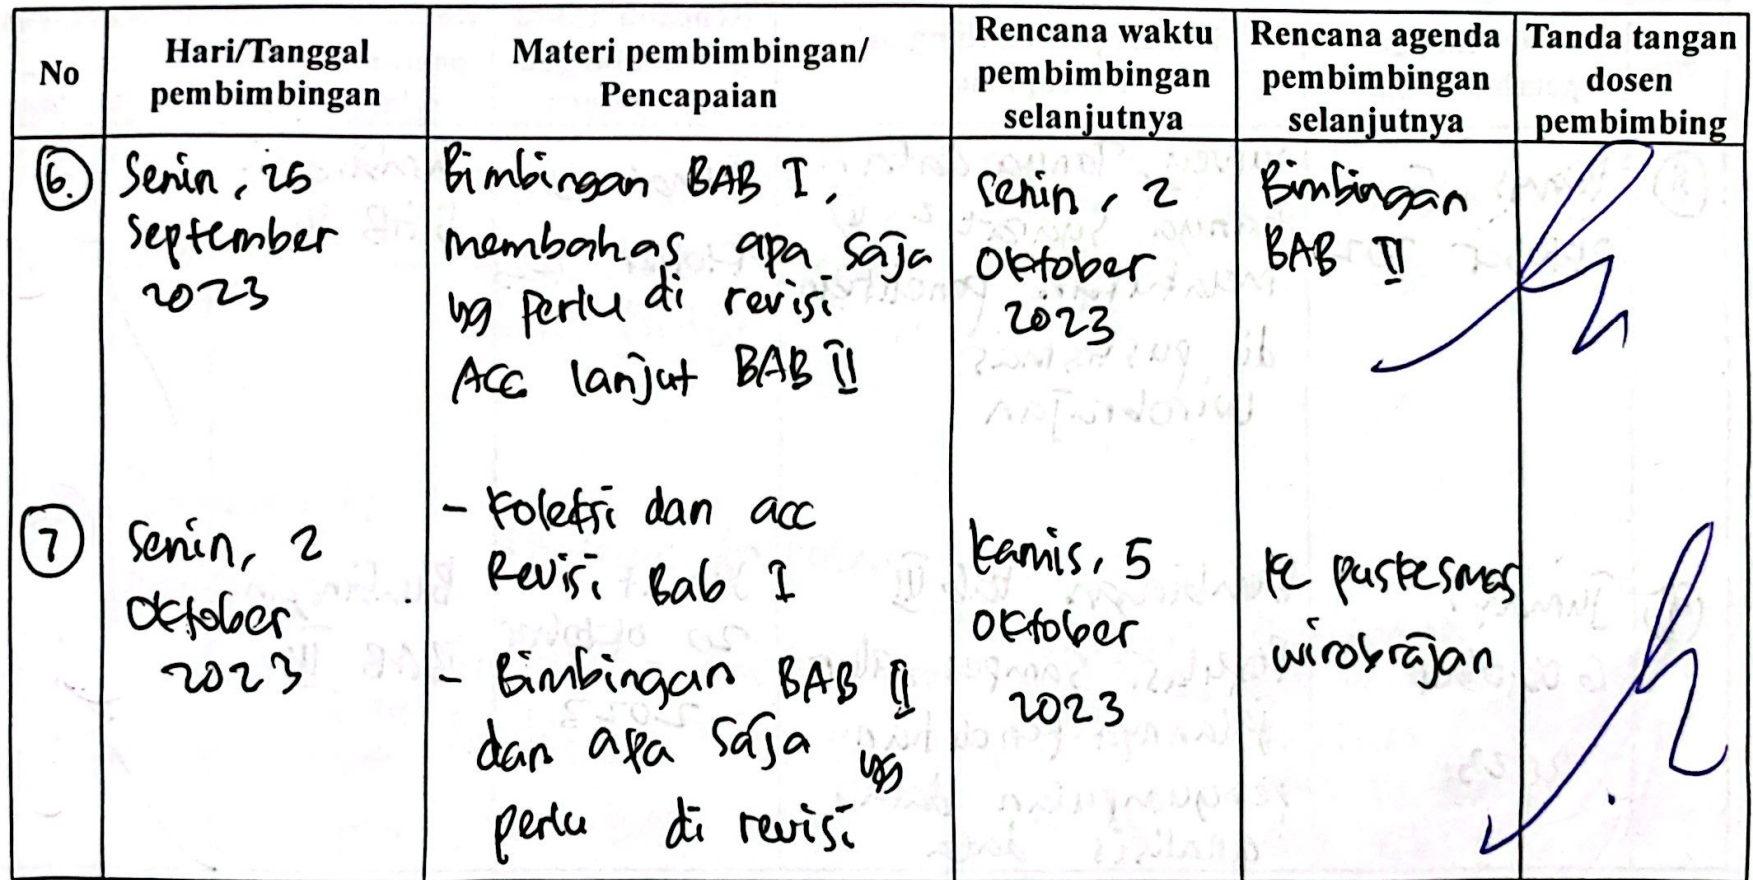 No
Hari/Tanggal
pembimbingan
Materi pembimbingan/
Pencapaian
Rencana waktu
pembimbingan
selanjutnya
Rencana agenda
pembimbingan
selanjutnya
Tanda tangan
dosen
pembimbing
6.
Senin, 25
September
2023
Bimbingan BAB I,
membahas apa saja
yg perlu di revisi
ACC lanjut BAB II
Senin, 2
Oktober
2023
Bimbingan
BAB II
7
Senin, 2
Oktober
2023
- Koleksi dan acc
Revisi Bab I
- Bimbingan BAB II
dan apa saja yg
perlu di revisi
Kamis, 5
Oktober
2023
Ke puskesmas
wirobrajan